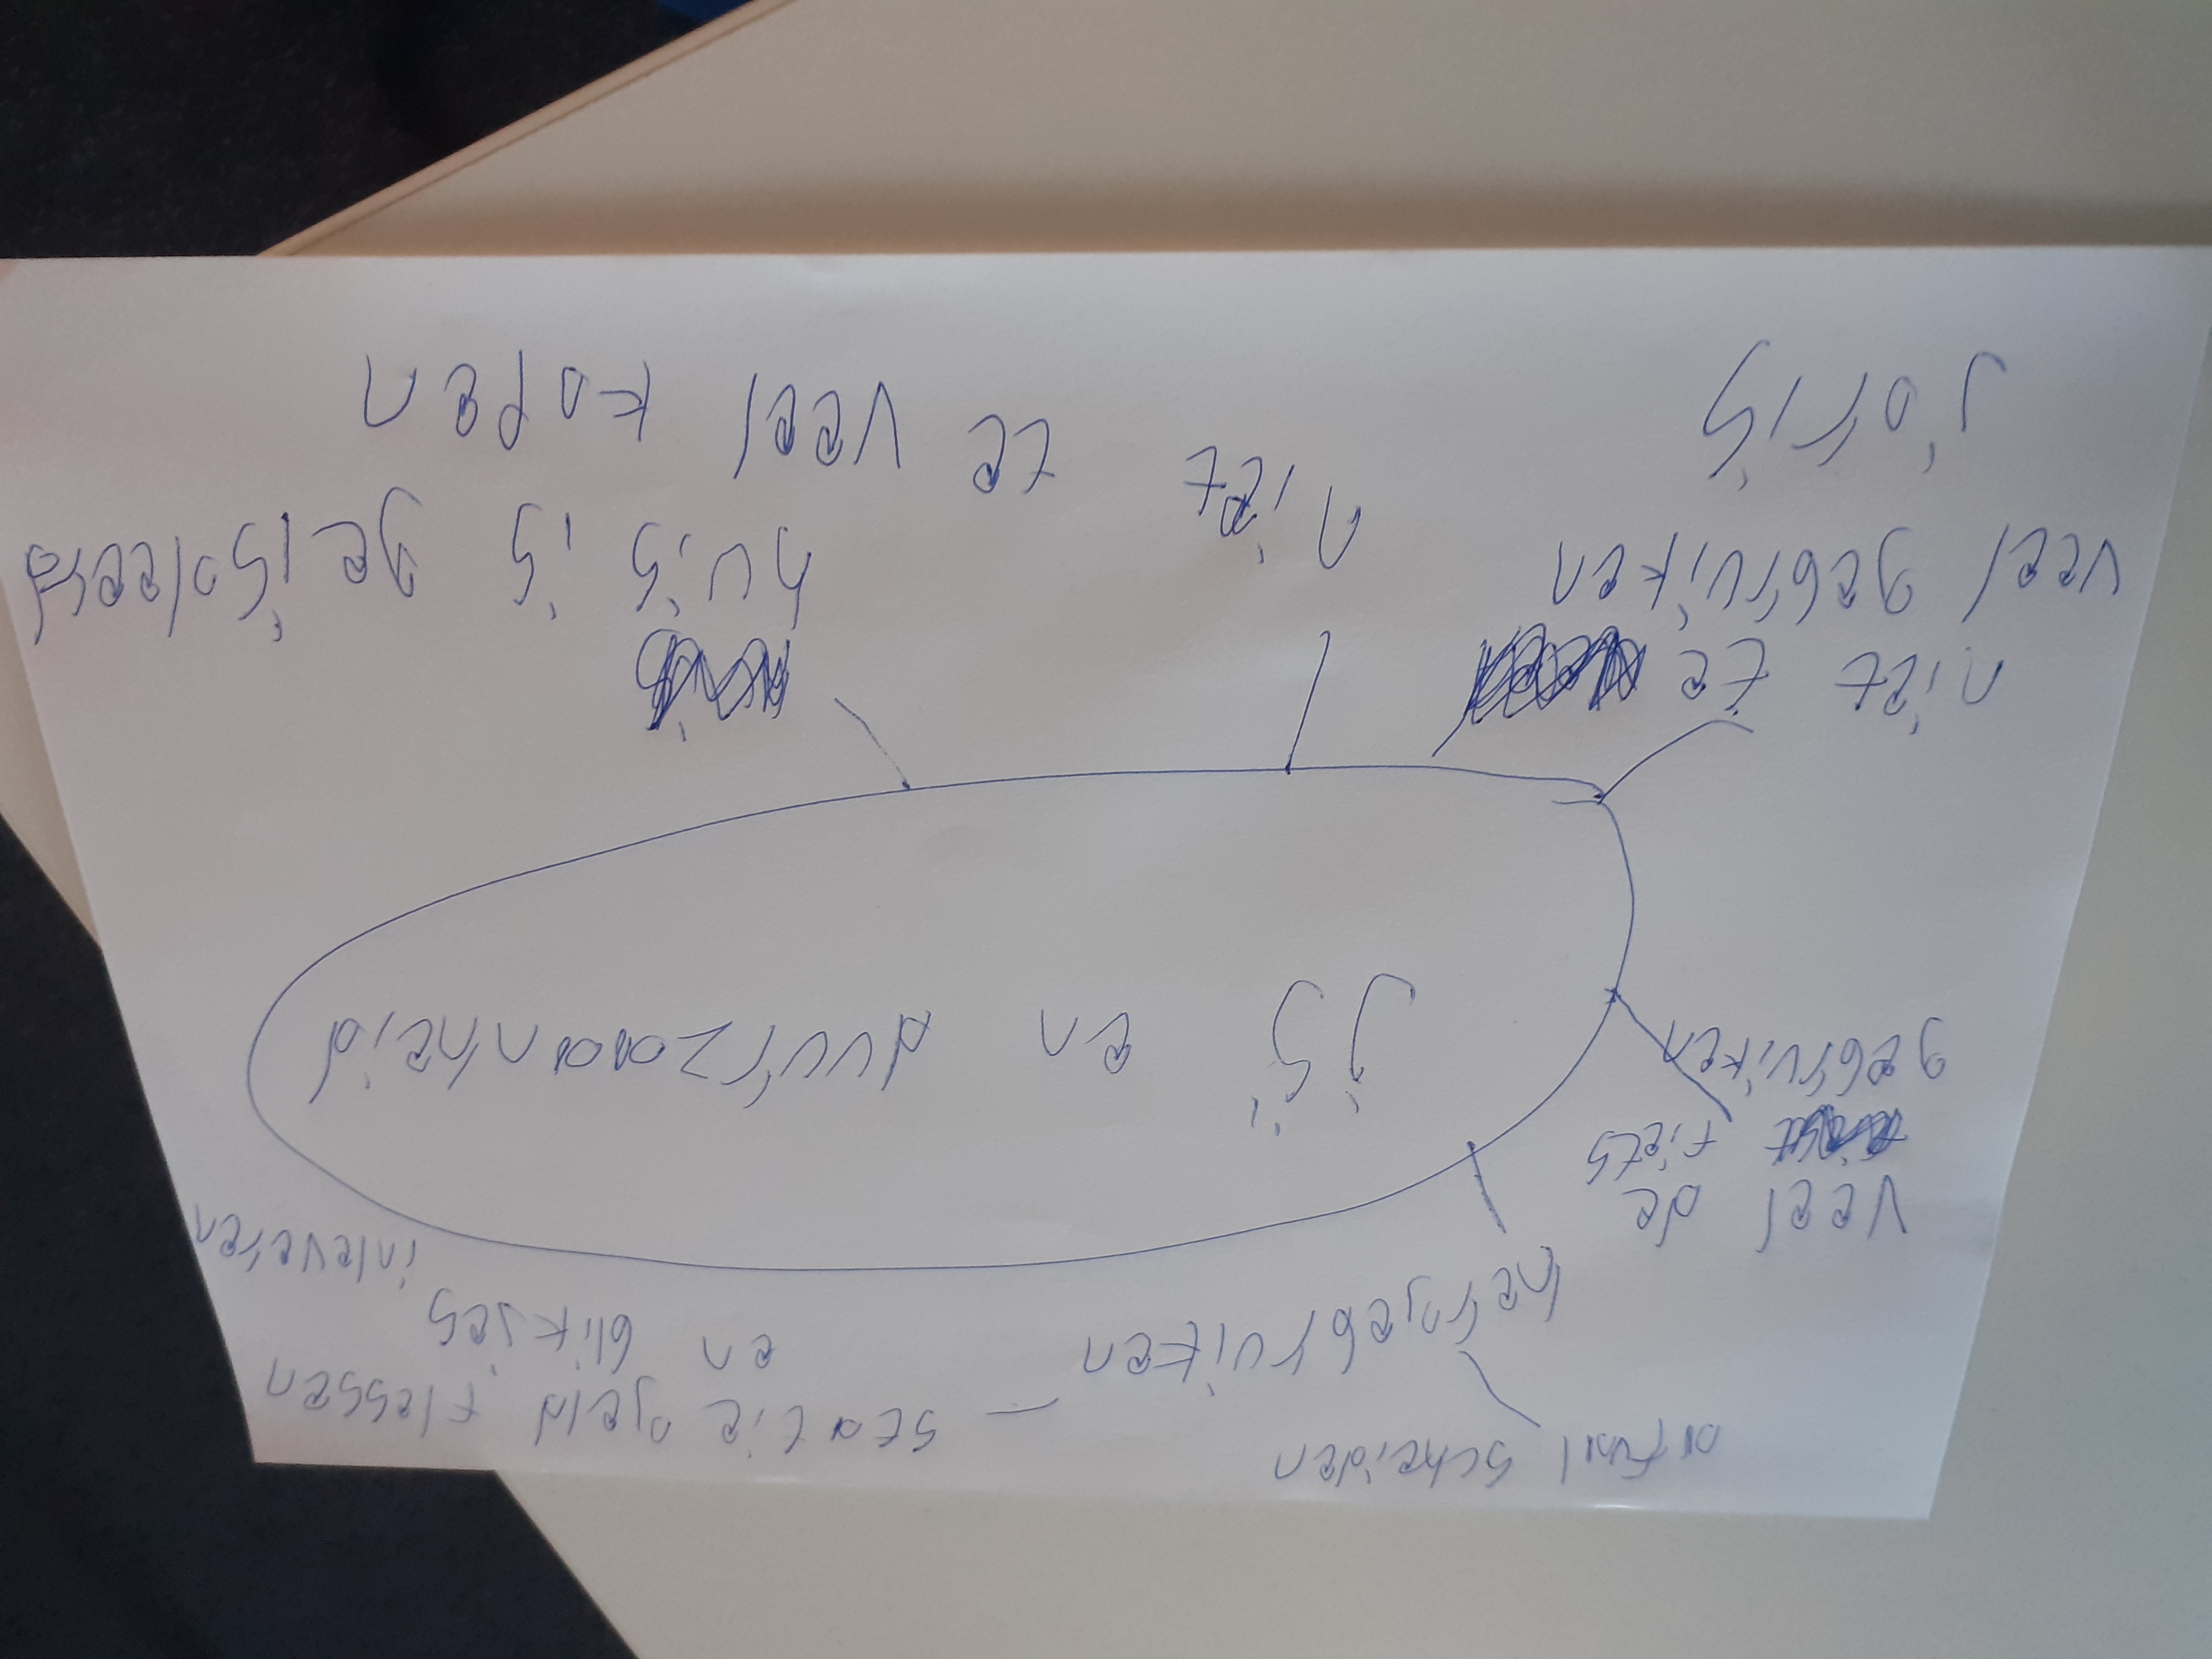 afval scheiden
hergebruiken
statie geld flessen
en blikjes
inleveren
veel de
fiets
gebruiken
jij en duurzaanheid
niet te
veel gebruiken
huis is geisoleerd
niet te veel kopen
joris